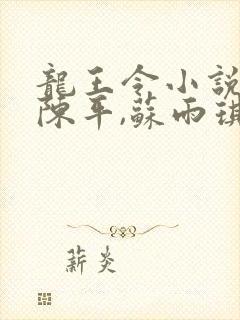 龍王令小說
陳平,蘇雨琪
薪炎